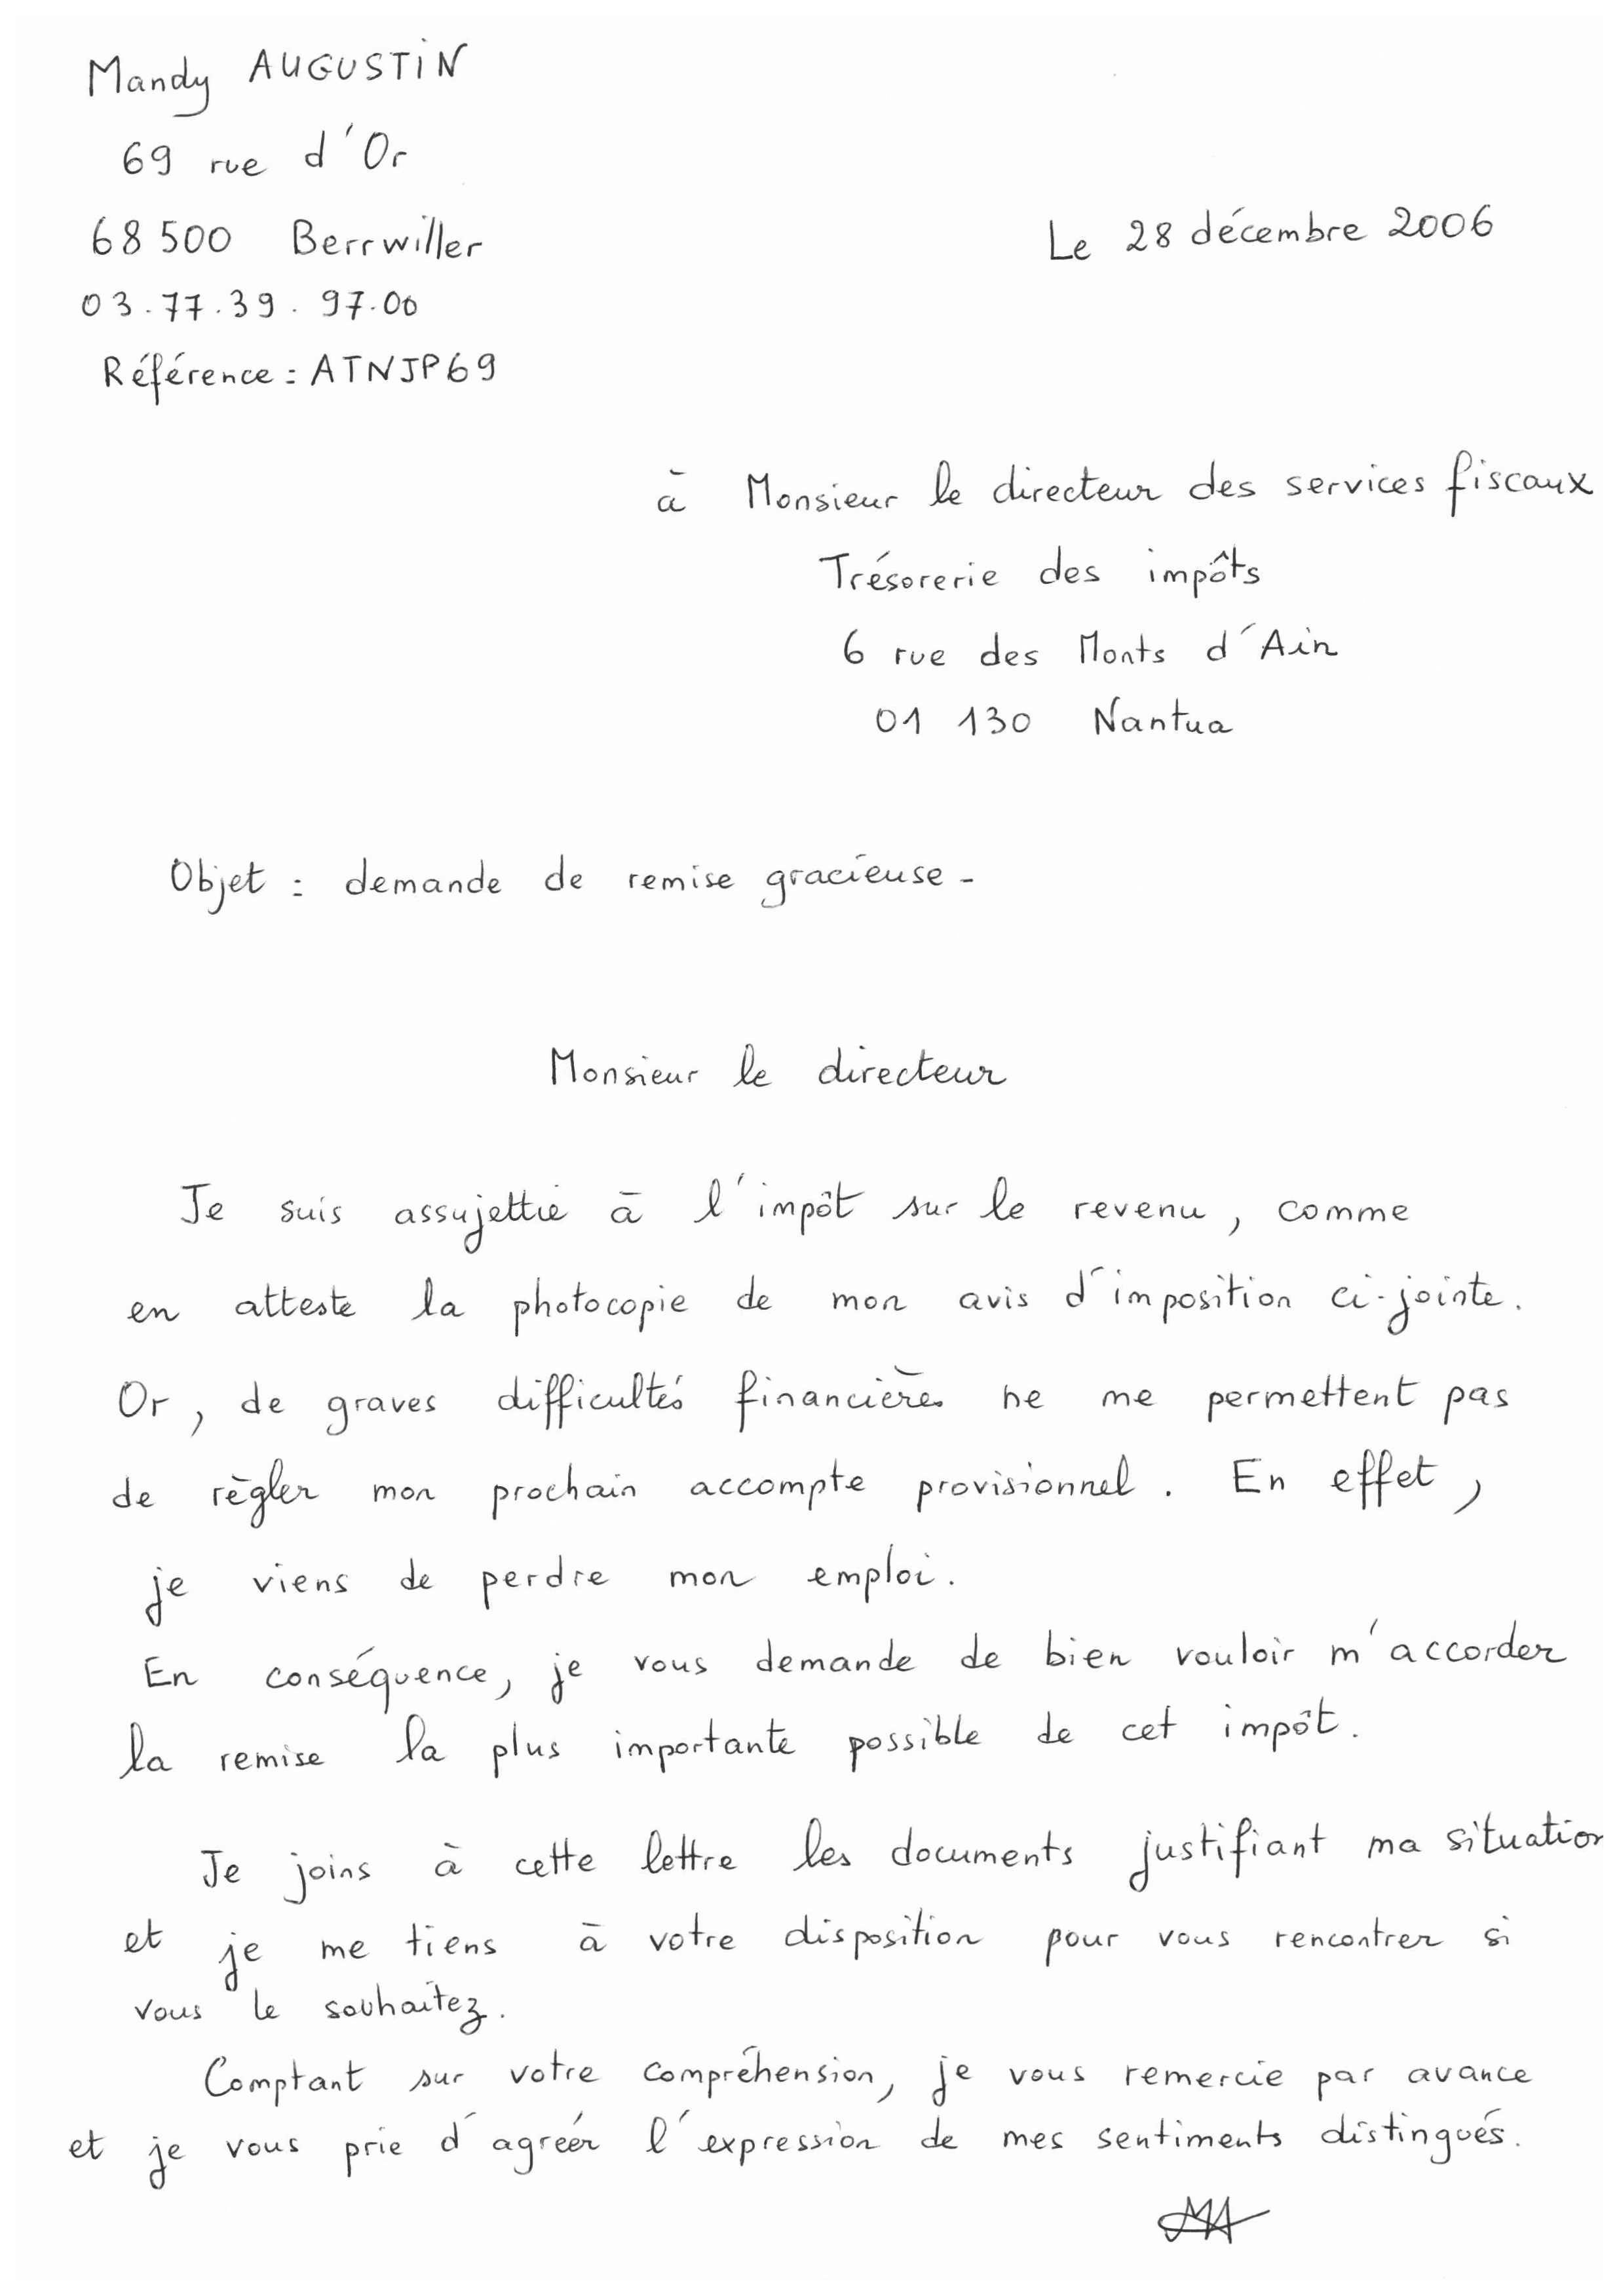 Mandy AUGUSTIN
69 rue d'Or
68 500 Berrwiller
Le 28 décembre 2006
03.77.39.97.00
Référence : ATNJP69
à Monsieur le directeur des services fiscaux
Trésorerie des impôts
6 rue des Monts d'Ain
01 130 Nantua
Objet : demande de remise gracieuse -
Monsieur le directeur
Je suis assujettie à l'impôt sur le revenu, comme
en atteste la photocopie de mon avis d'imposition ci-jointe.
Or, de graves difficultés financières ne me permettent pas
de règler mon prochain accompte provisionnel. En effet,
je viens de perdre mon emploi.
En conséquence, je vous demande de bien vouloir m'accorder
la remise la plus importante possible de cet impôt.
Je joins à cette lettre les documents justifiant ma situation
et je me tiens à votre disposition pour vous rencontrer si
vous le souhaitez.
Comptant sur votre compréhension, je vous remercie par avance
et je vous prie d'agréer l'expression de mes sentiments distingués.
MA